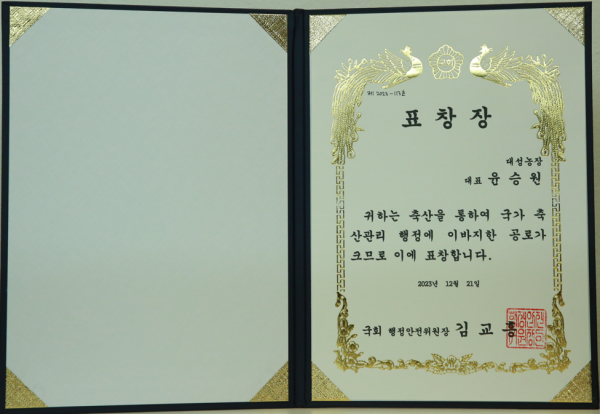 표창장
대섭농장
대표 윤승원
귀하는 축산을 통하여 국가 축
산관리 행정에 이바지한 공로가
크므로 이에 표창합니다.
2023년 12월 21일
국회 행정안전위원장 김교흥